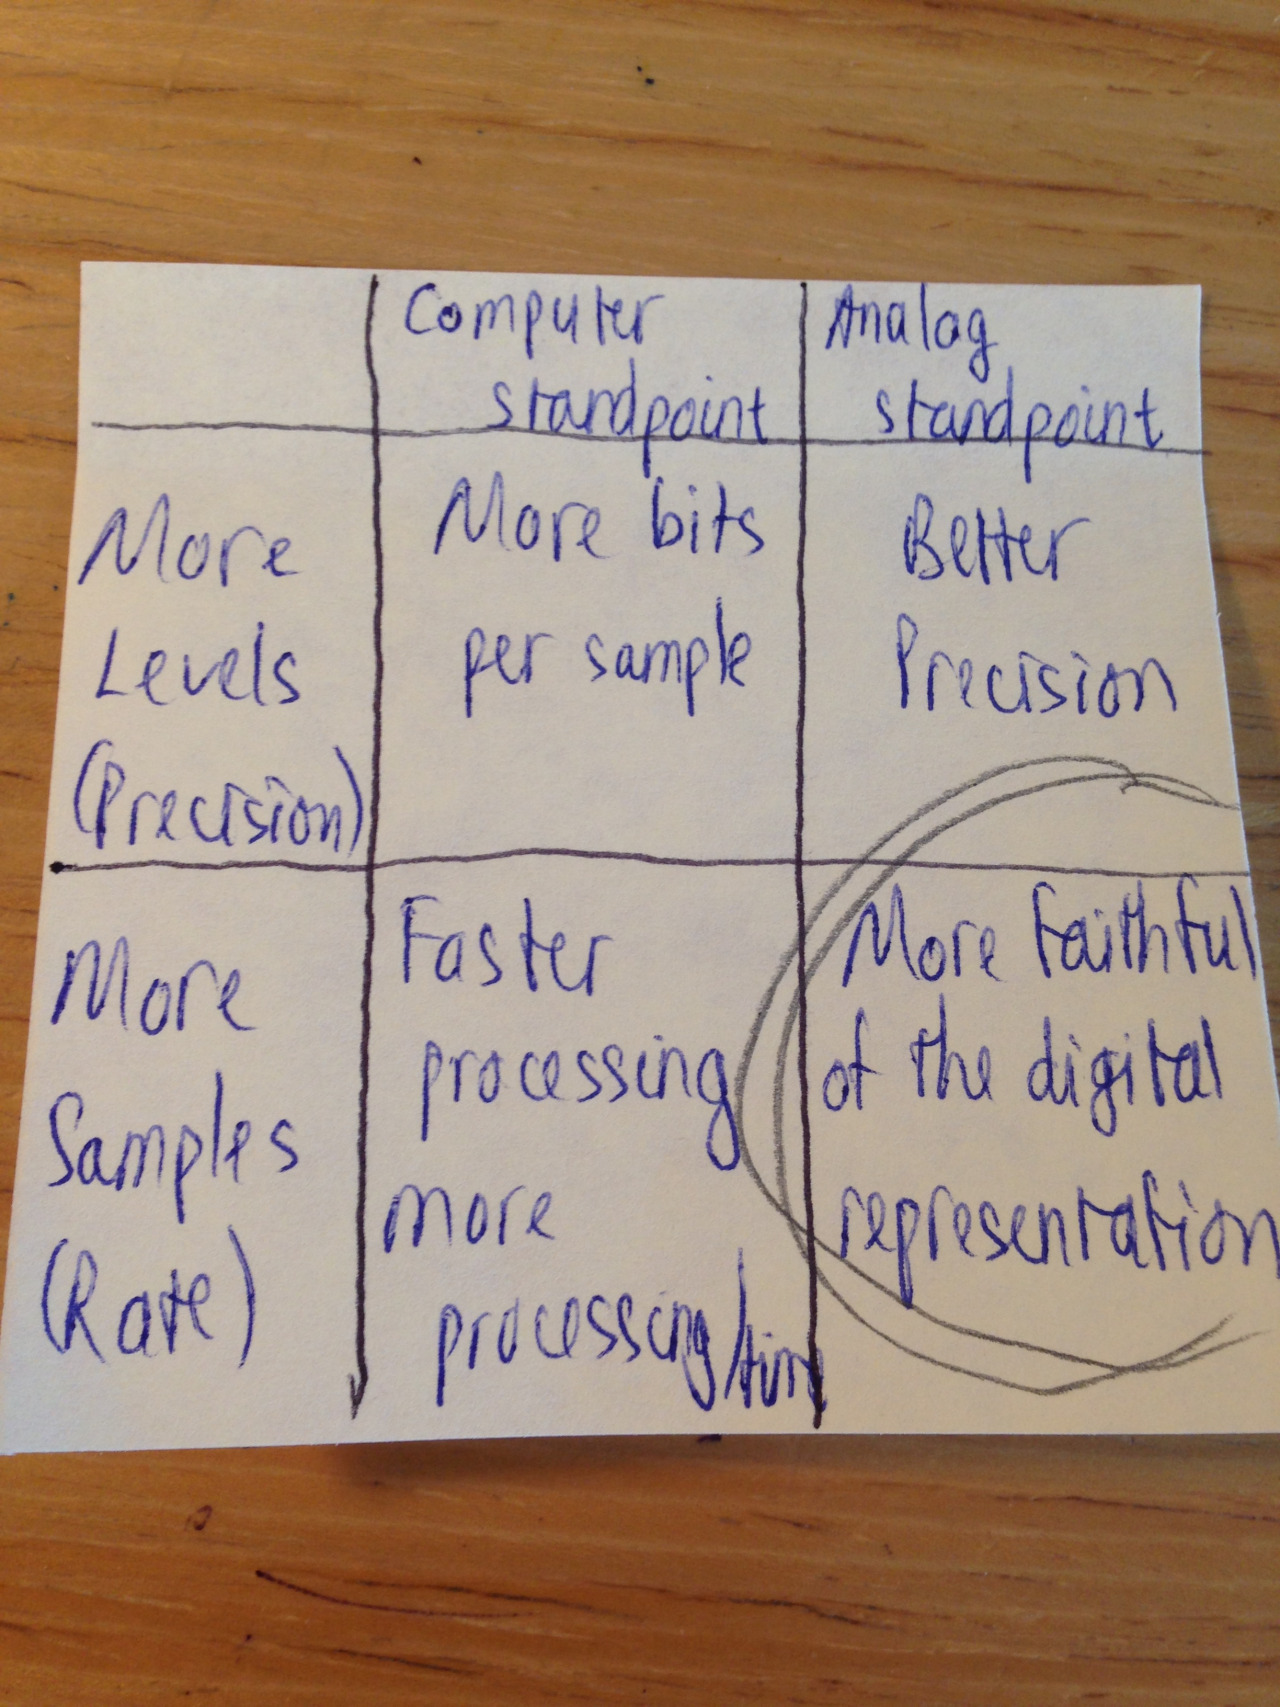 Computer
standpoint
Analog
standpoint
More
Levels
(Precision)
More bits
per sample
Better
Precision
More
Samples
(Rate)
Faster
processing
more
processing/time
More faithful
of the digital
representation